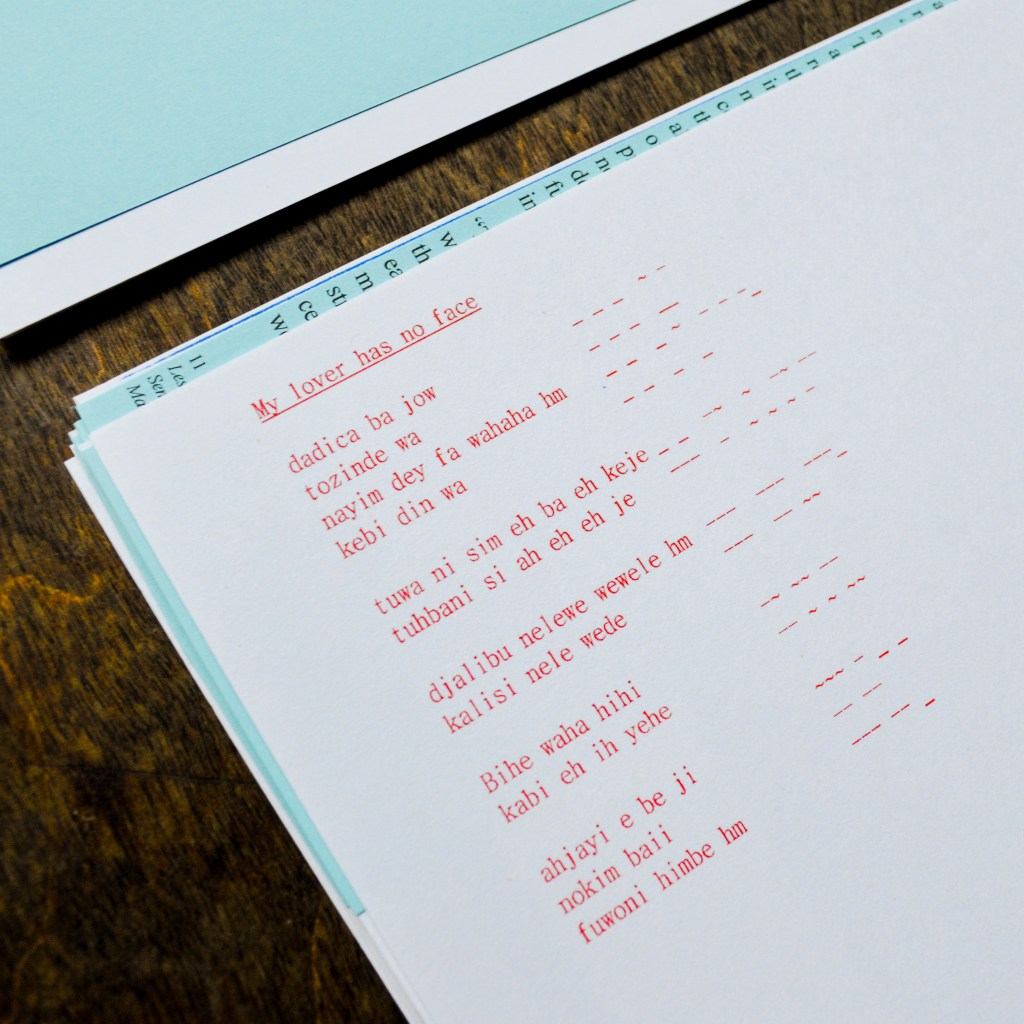 My lover has no face
dadica ba jow
tozinde wa
nayim dey fa wahaha hm
kebi din wa
tuwa ni sim eh ba eh keje
tuhbani si ah eh eh je
djalibu nelewe wewele hm
kalisi nele wede
Bihe waha hihi
kabi eh ih yehe
ahjayi e be ji
nokim baii
fuwoni himbe hm
11